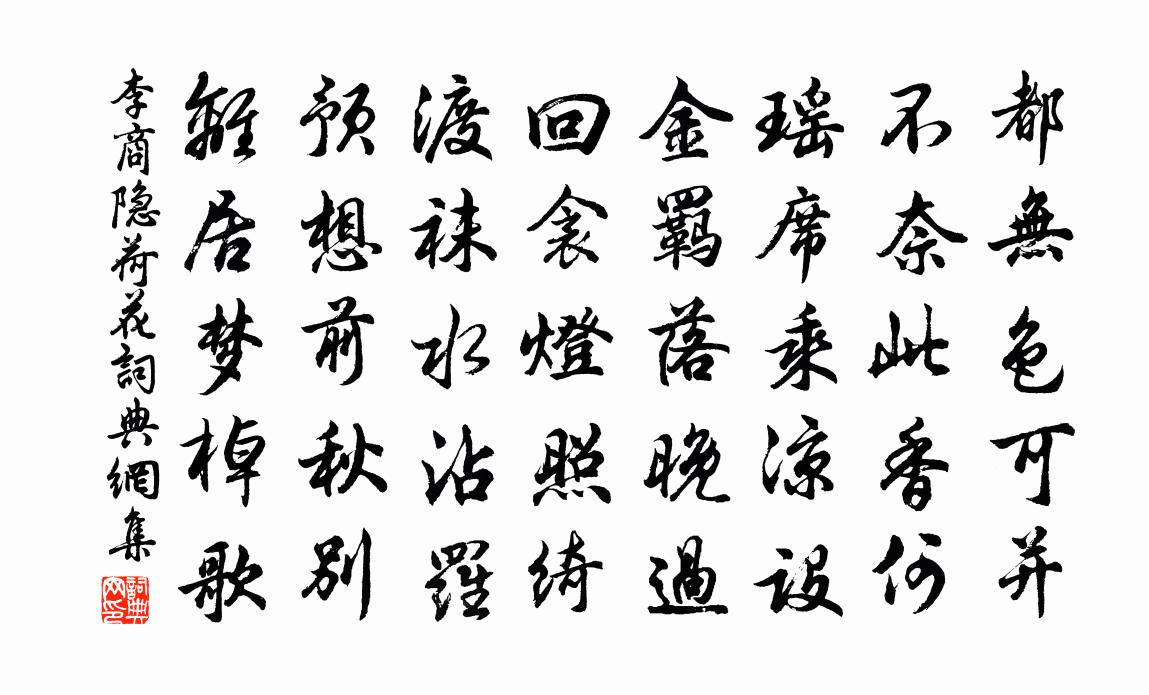 都無色可并
不奈此香何
瑶席乘凉設
金羈落晚過
回衾燈照綺
渡袜水沾羅
预想前秋别
離居梦棹歌
李商隐荷花詞典網集